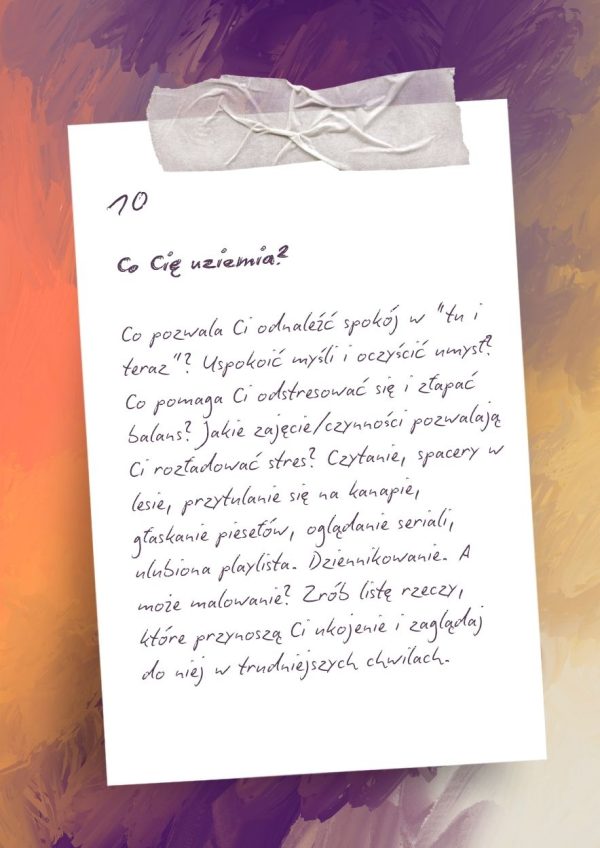 10
Co Cię uziemia?
Co pozwala Ci odnaleźć spokój w "tu i
teraz"? Uspokoić myśli i oczyścić umysł?
Co pomaga Ci odstresować się i złapać
balans? Jakie zajęcie/czynności pozwalają
Ci rozładować stres? Czytanie, spacery w
lesie, przytulanie się na kanapie,
głaskanie piesełów, oglądanie seriali,
ulubiona playlista. Dziennikowanie. A
może malowanie? Zrób listę rzeczy,
które przynoszą Ci ukojenie i zaglądaj
do niej w trudniejszych chwilach.